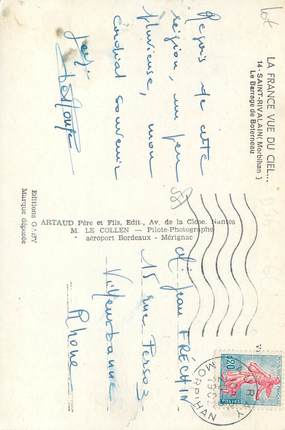 LA FRANCE VUE DU CIEL...
14 - SAINT-RIVALAIN (Morbihan)
Le Barrage de Boterneau
Reçois de cette
région, un peu
pluvieuse, mon
cordial souvenir
Editions GABY
Marque déposée
ARTAUD Père et Fils, Edit., Av. de la Close, Nantes
M. LE COLLEN — Pilote-Photographe
aéroport Bordeaux - Mérignac
Jean FRÉCHIN
15 rue
Villeurbanne
Rhône
MORBIHAN
0,20
POSTES